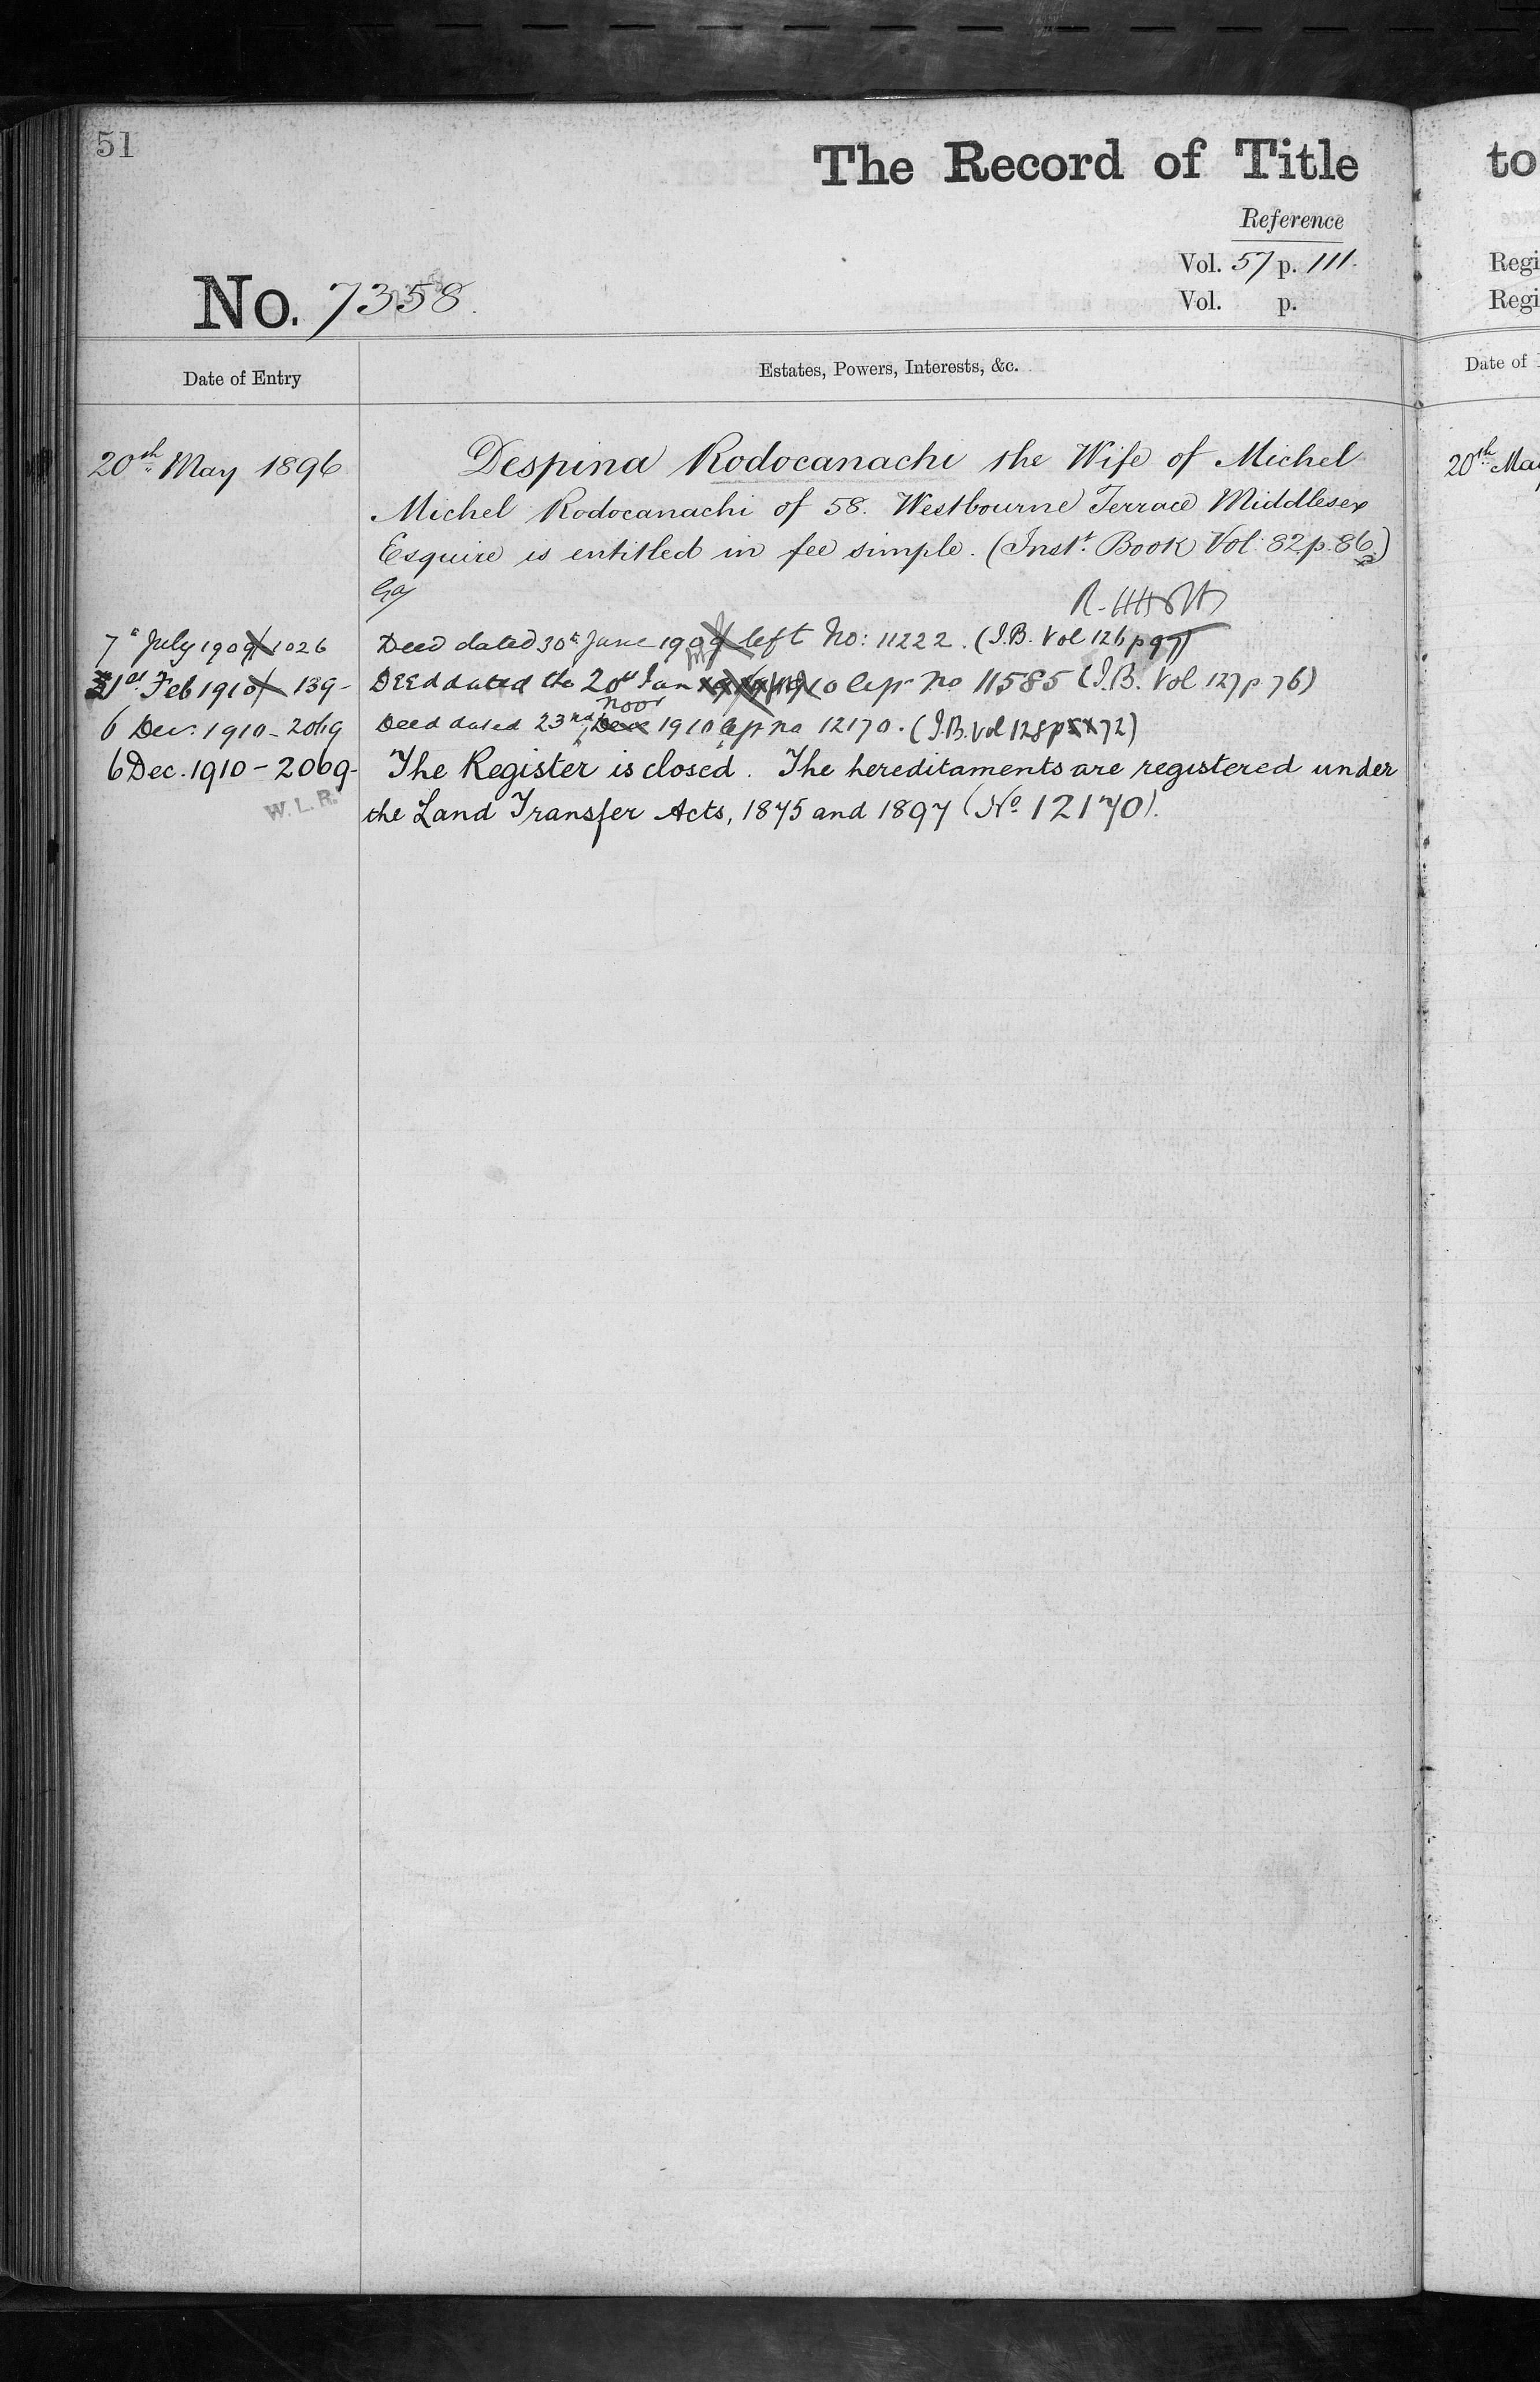 51
The Record of Title
Reference
Vol. 57 p. 111.
Vol. p.
No. 7358.
Date of Entry
Estates, Powers, Interests, &c.
20th May 1896
Despina Rodocanachi the Wife of Michel
Michel Rodocanachi of 58. Westbourne Terrace Middlesex
Esquire is entitled in fee simple. (Inst. Book Vol: 82 p. 86)
7th July 1909 1026
Deed dated 30th June 1909 left No: 11222. (I.B. Vol 126 p 97)
1st Feb 1910 139-
Deed dated the 20th Jan 1910 no 11585 (I.B. Vol 127 p 76)
6 Dec. 1910 - 2069
Deed dated 23rd Novr 1910 no 12170. (I.B. Vol 128 p 72)
6 Dec. 1910 - 2069-
The Register is closed. The hereditaments are registered under
W.L.R.
the Land Transfer Acts, 1875 and 1897 (No. 12170).
to
Regi
Regi
Date of
20th May